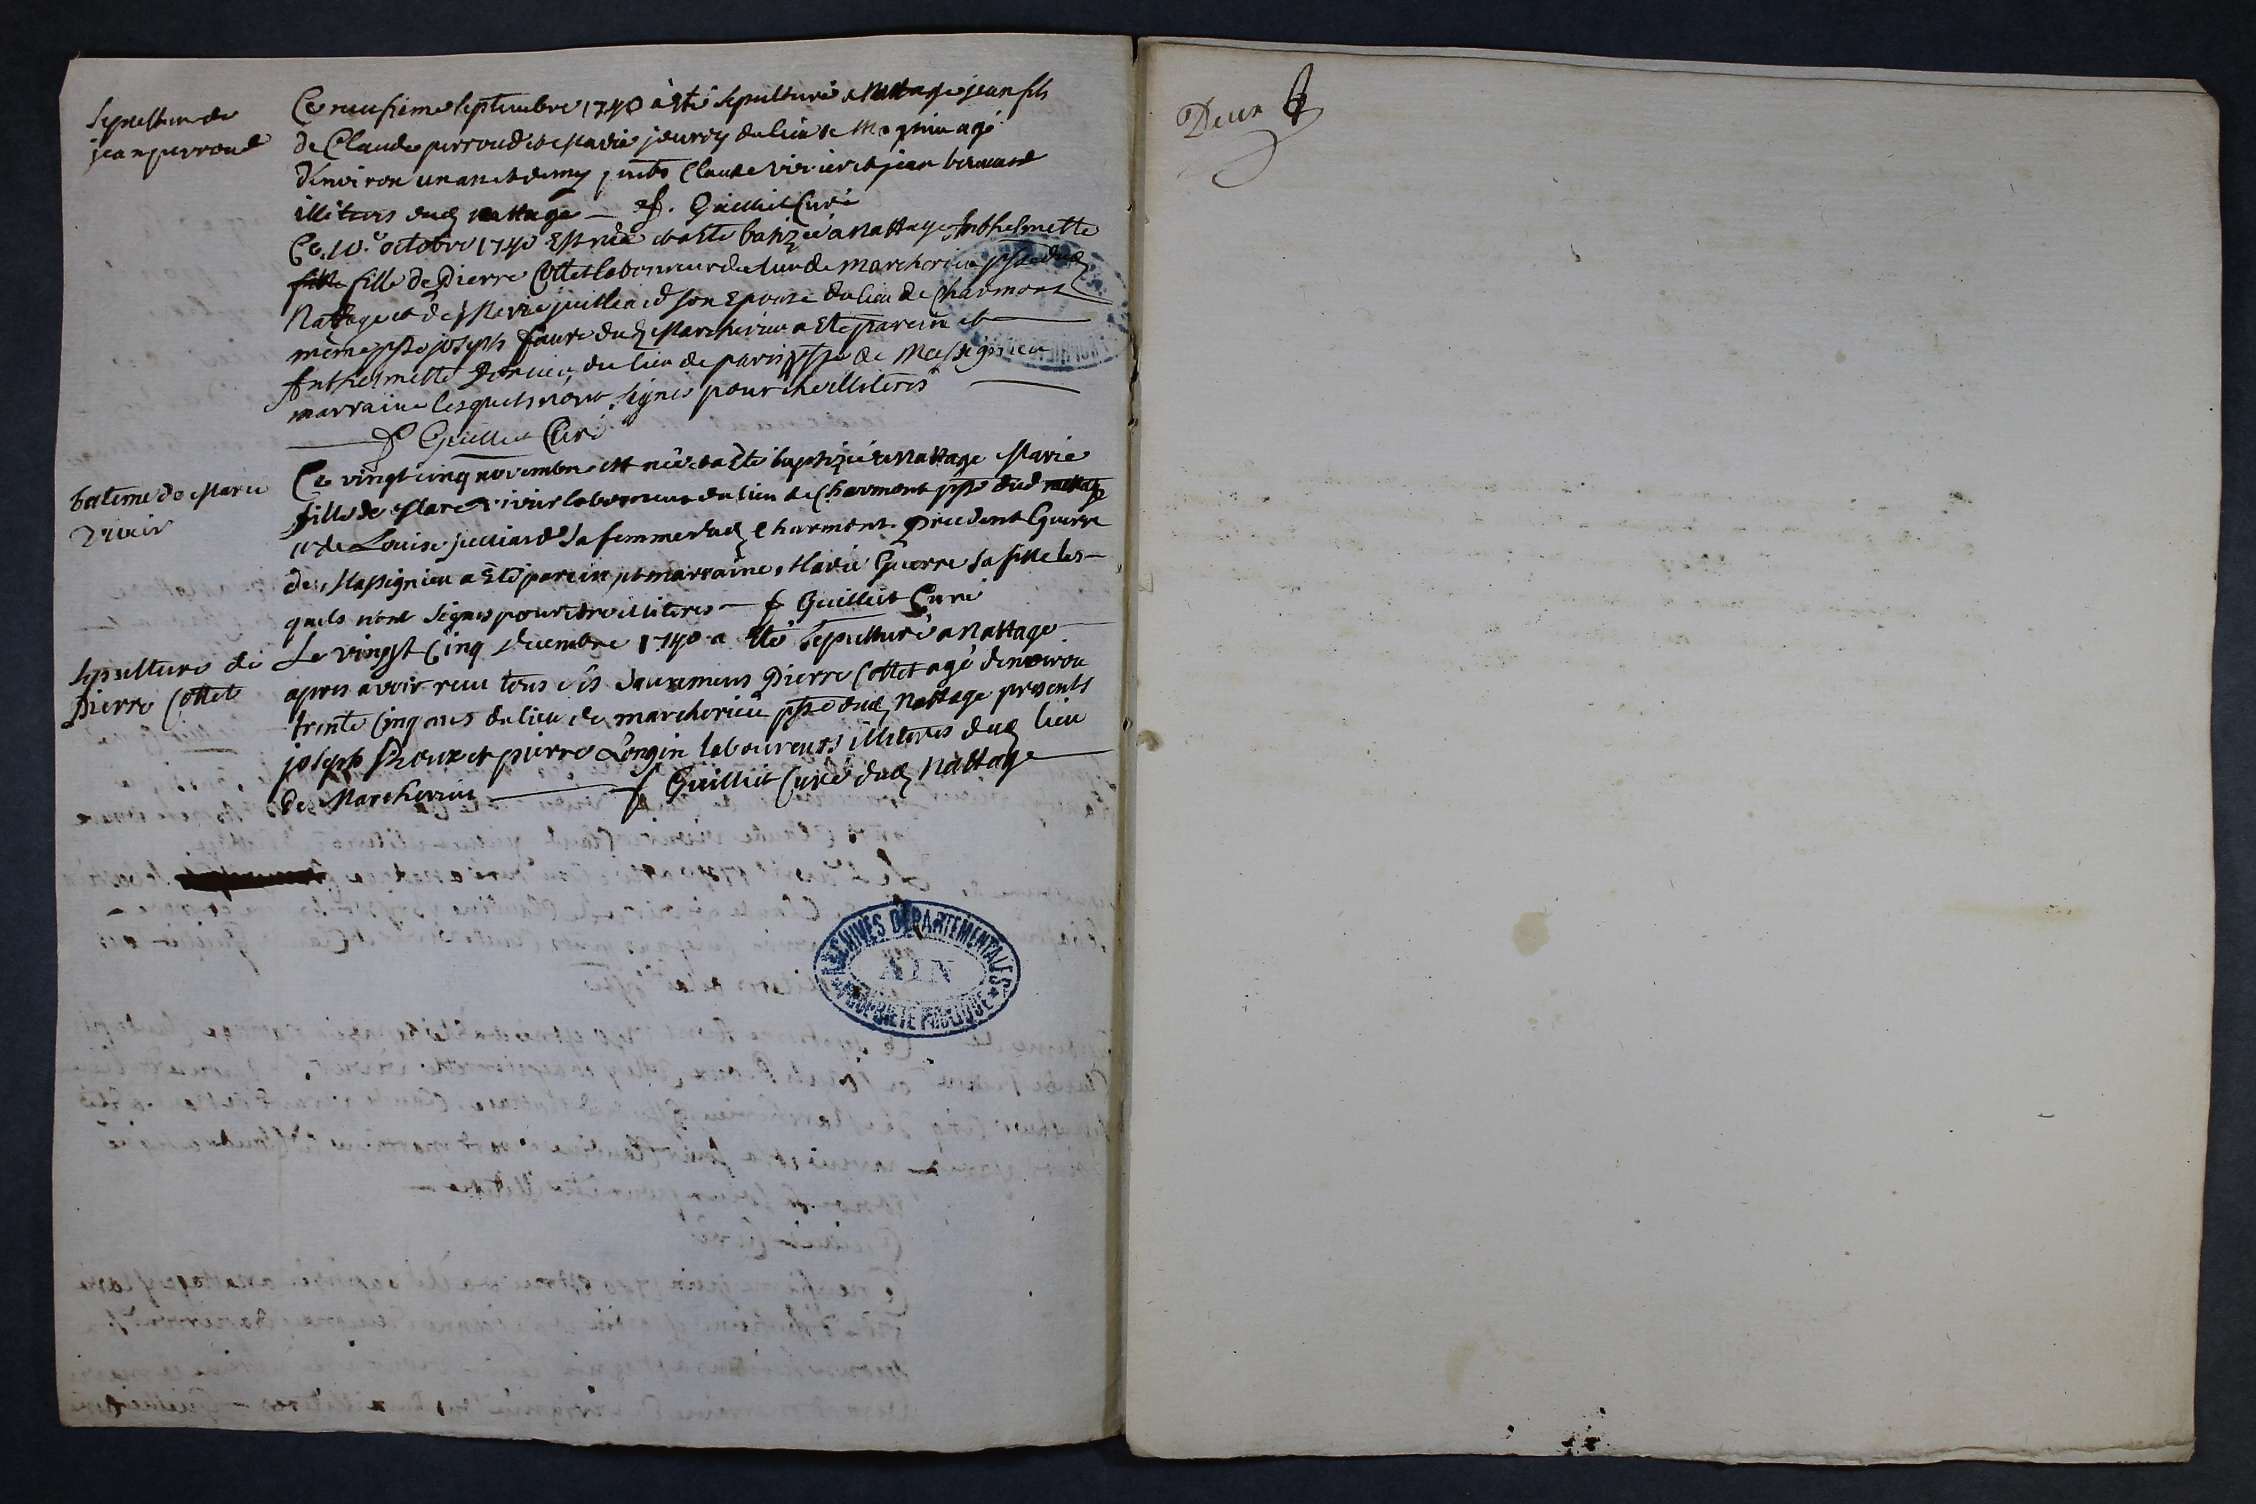 Sepulture de
jean perroud
Ce neufieme septembre 1740 à Eté sepulturé a Nattage jean fils
de Claude perroud et de Marie jourdy du lieu de Mognin agé
d'environ un an et demy pnts Claude Vivier et jean bernard
illiteres dud nattage — f. Guilliet Curé
Ce 10e octobre 1740 Est née et a Eté batizée a Nattage Anthelmette
fille fille de Pierre Cottet laboureur du lieu de marcherieu psse dud
Nattage et de Marie juilliard son Epouse du lieu de Charmont
même psse joseph faure dud Marcherieu a Eté parein et
Anthelmette du lieu de parissse de Massignieu
marraine lesquels n'ont signés pour être illiteres
f Guilliet Curé
bateme de Marie
Vivier
Ce vingt cinq novembre est née et a Eté baptizée a Nattage Marie
fille de Marc Vivier laboureur du lieu de Charmont psse dud nattage
et de Louise juilliard sa femme dud Charmont. Precedent Guerre
de Massignieu a Eté parein et marraine Marie Guerre sa fille les-
quels n'ont signés pour être illiteres — f Guilliet Curé
Sepulture de
Pierre Cottet
Le vingt Cinq decembre 1740 a Eté sepulturé a Nattage
apres avoir reçu tous ses Sacremens Pierre Cottet agé d'environ
trente Cinq ans du lieu de marcherieu psse dud Nattage presents
joseph Proux et pierre Longin laboureurs illiteres dud lieu
de Marcherieu — f Guilliet Curé dud Nattage
ARCHIVES DÉPARTEMENTALES
AIN
PROPRIÉTÉ PUBLIQUE
Deux